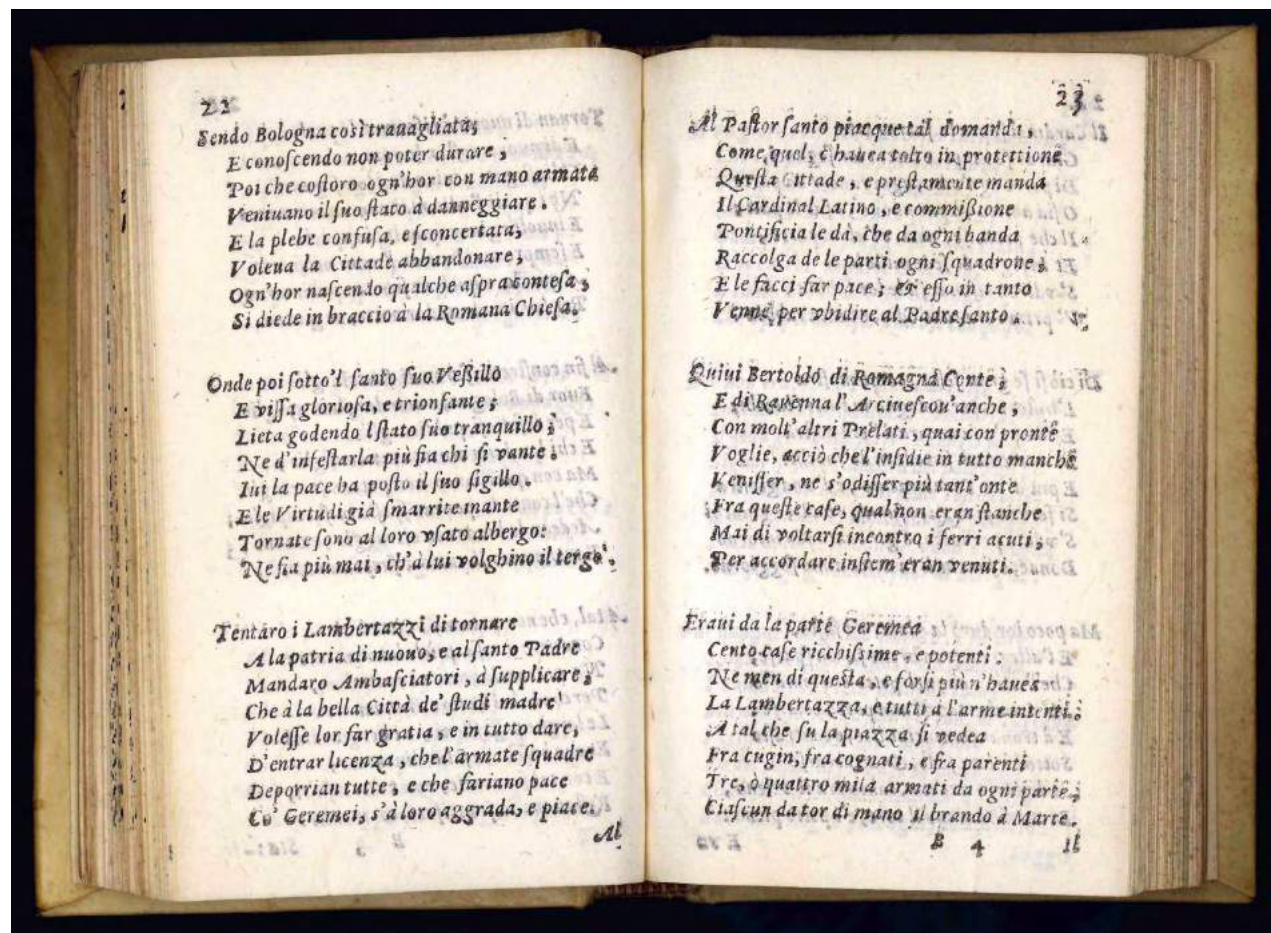 22
Sendo Bologna così trauagliata;
E conoſcendo non poter durare;
Poi che coſtoro ogn'hor con mano armata
Veniuano il ſuo ſtato à danneggiare.
E la plebe confuſa, e ſconcertata;
Voleua la Cittade abbandonare;
Ogn'hor naſcendo qualche aſpra conteſa;
Si diede in braccio à la Romana Chieſa.
Onde poi ſotto'l ſanto ſuo Veßillo
E viſſa glorioſa, e trionfante;
Lieta godendo l ſtato ſuo tranquillo;
Ne d'infeſtarla più fia chi ſi vante;
Iui la pace ha poſto il ſuo ſigillo.
E le Virtù di già ſmarrite inante
Tornate ſono al loro vſato albergo:
Ne fia più mai, ch'à lui volghino il tergo.
Tentaro i Lambertazzi di tornare
A la patria di nuouo, e al ſanto Padre
Mandaro Ambaſciatori, à ſupplicare;
Che à la bella Città de' ſtudi madre
Voleſſe lor far gratia, e in tutto dare,
D'entrar licenza, che l'armate ſquadre
Deporrian tutte, e che fariano pace
Co' Geremei, s'à loro aggrada, e piace.
B 3
Al
23
Al Paſtor ſanto piacque tal domanda,
Come quel, c'hauea tolto in protettione
Queſta Cittade, e preſtamente manda
Il Cardinal Latino, e commißione
Pontificia le dà, che da ogni banda
Raccolga de le parti ogni ſquadrone;
E le facci far pace; & eſſo in tanto
Venne per vbidire al Padre ſanto.
Quiui Bertoldo di Romagna Conte;
E di Rauenna l'Arciueſcou'anche;
Con molt'altri Prelati, quai con pronte
Voglie, acciò che l'inſidie in tutto manche
Veniſſer, ne s'odiſſer più tant'onte
Fra queſte caſe, qual non eran ſtanche
Mai di voltarſi incontro i ferri acuti;
Per accordare inſiem'eran venuti.
Eraui da la parte Geremea
Cento caſe ricchiſsime, e potenti.
Ne men di queſta, e forſi più n'hauea
La Lambertazza, e tutti à l'arme intenti;
A tal che ſu la piazza ſi vedea
Fra cugin, fra cognati, e fra parenti
Tre, ò quattro mila armati da ogni parte;
Ciaſcun da tor di mano il brando à Marte.
B 4
Il